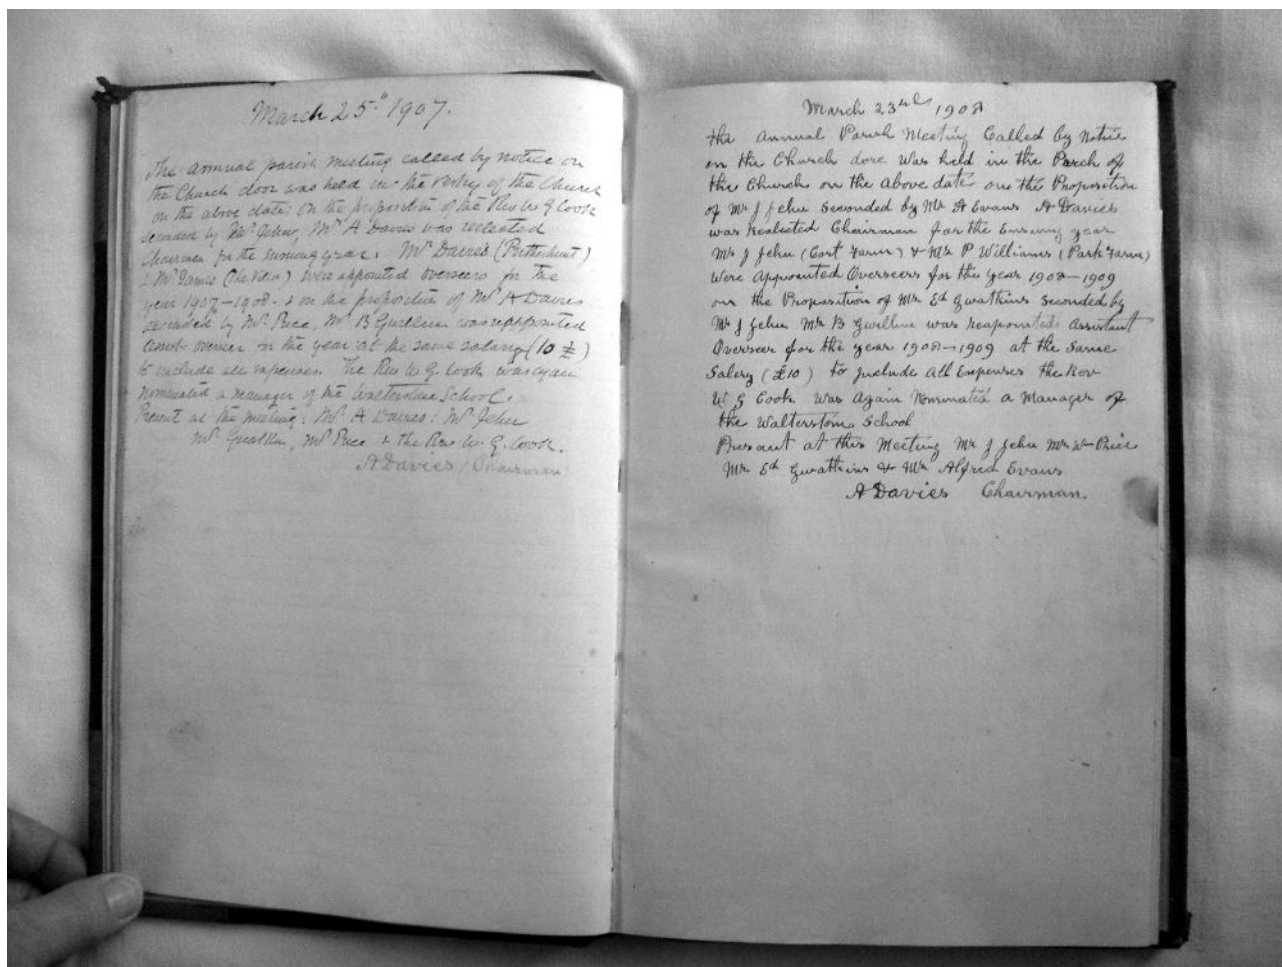 March 25th 1907.
The annual parish meeting called by notice on
the Church door was held in the Vestry of the Church
on the above date: on the proposition of the Rev W G Cook
seconded by Mr Jehu, Mr A Davies was reelected
Chairman for the ensuing year. Mr Davies
& Mr Davies (The Vedw) were appointed overseers for the
year 1907-1908. & on the proposition of Mr A Davies
seconded by Mr Price, Mr B Gwillim was reappointed
Assist overseer for the year at the same salary (10 £)
to include all expenses. The Rev W G. Cook was again
nominated a manager of the Walterstone School.
Present at the meeting: Mr. A Davies: Mr Jehu
Mr Mr Price & the Rev W. G. Cook.
A Davies Chairman
March 23rd 1908
the Annual Parish Meeting Called by Notice
on the Church dore was held in the Porch of
the Church on the Above date on the Proposition
of Mr J Jehu Seconded by Mr A Evans A Davies
was Realected Chairman for the Ensuing year
Mr J Jehu (Cort Farm) & Mr P Williams (Park Farm)
Were Appointed Overseers for the Year 1908-1909
on the Proposition of Mr Ed Gwatkins Seconded by
Mr J Jehu Mr B Gwillim was reapointed Assistant
Overseer for the year 1908-1909 at the Same
Salery (£10) to Include All Expenses the Rev
W G Cook was Again Nominated a Manager of
the Walterstone School
Presant at this Meeting Mr J Jehu Mr W Price
Mr Ed Gwatkins & Mr Alfred Evans
A Davies Chairman